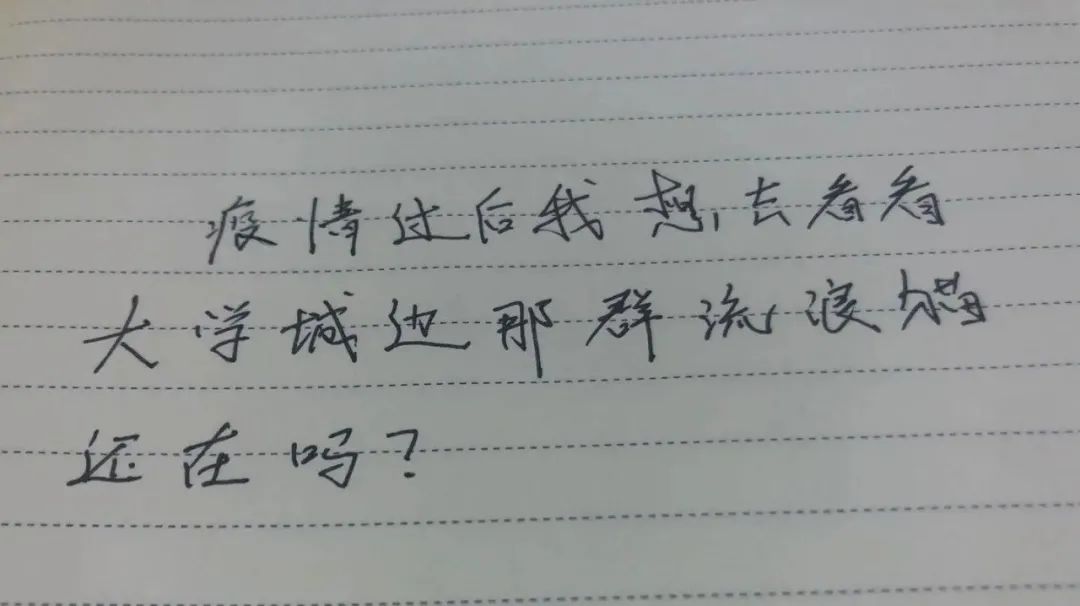 疫情过后我想去看看
大学城边那群流浪猫
还在吗?